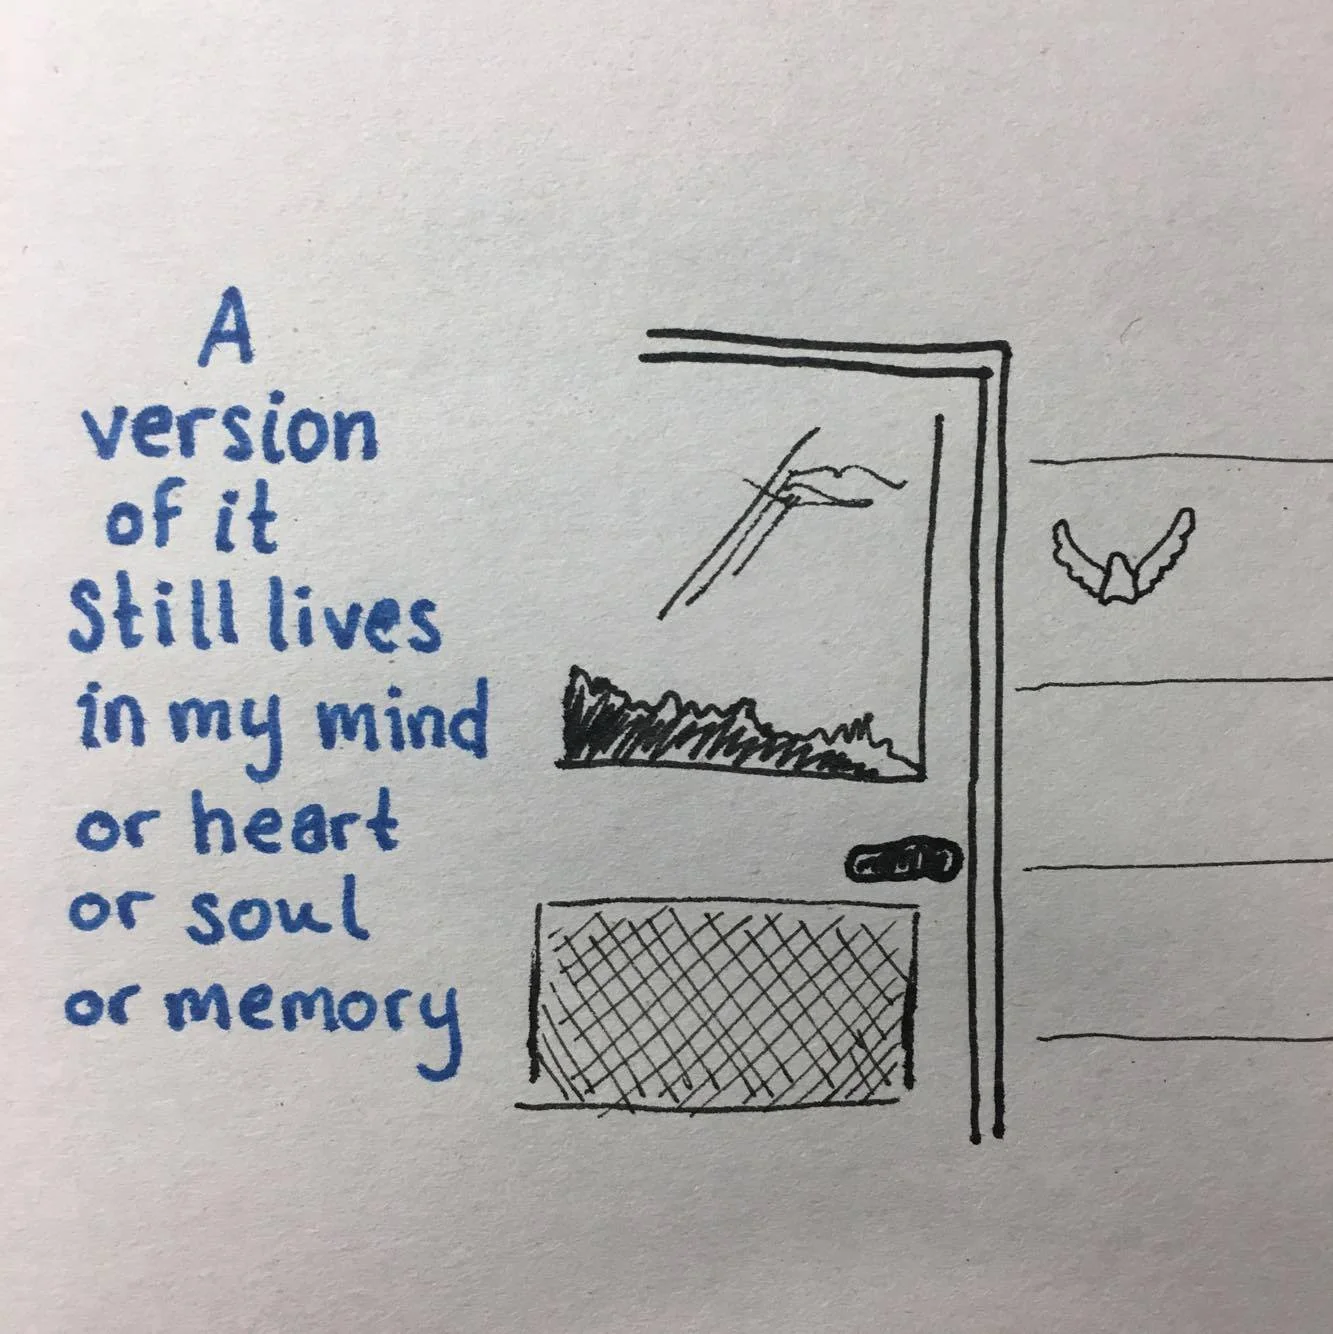 A
version
of it
Still lives
in my mind
or heart
or soul
or memory